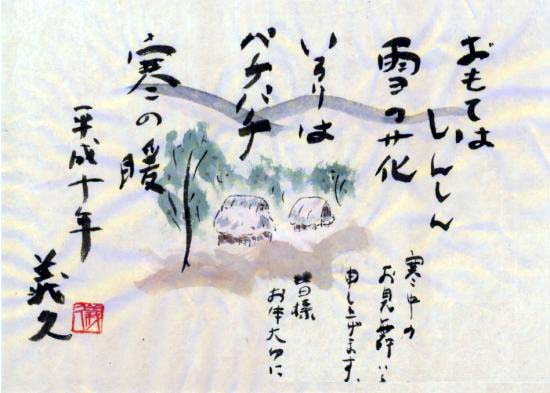 おもては
しんしん
雪の花
いろりは
パチパチ
寒の暖
平成十年
義久
寒中の
お見舞いを
申し上げます。
皆様
お体大切に